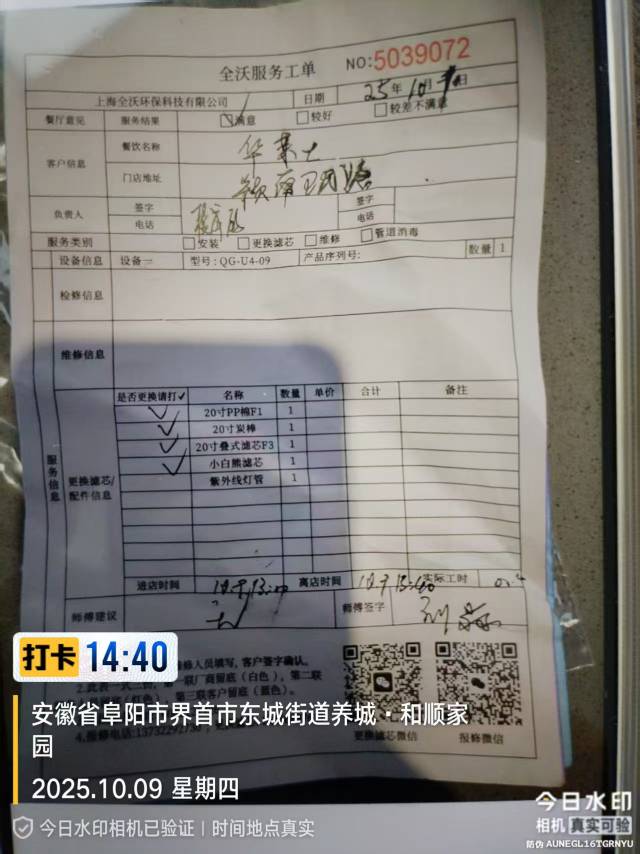 全沃服务工单
NO:5039072
上海全沃环保科技有限公司 日期 25年10月9日
餐厅意见 服务结果 满意 较好 较差不满意
客户信息 餐饮名称 华莱士
门店地址
负责人 签字 签字
电话 电话
服务类别 安装 更换滤芯 维修 管道消毒
设备信息 设备一 型号:QG-U4-09 产品序列号: 数量 1
检修信息
维修信息
服务信息
更换滤芯/配件信息
是否更换请打✓ 名称 数量 单价 合计 备注
✓ 20寸PP棉F1 1
✓ 20寸炭棒 1
✓ 20寸叠式滤芯F3 1
✓ 小白熊滤芯 1
紫外线灯管 1
进店时间 离店时间 实际工时
师傅建议 无 师傅签字
修人员填写,客户签字确认。
2.此表一式三 一联厂商留底(白色),第二联
留底(红色), 第三联客户留底(蓝色)。
4.报修电话:13732292730
更换滤芯微信 报修微信
打卡 14:40
安徽省阜阳市界首市东城街道养城·和顺家
园
2025.10.09 星期四
今日水印相机已验证 时间地点真实
今日水印
相机 真实可验
防伪 AUNEGL16TGRNYU